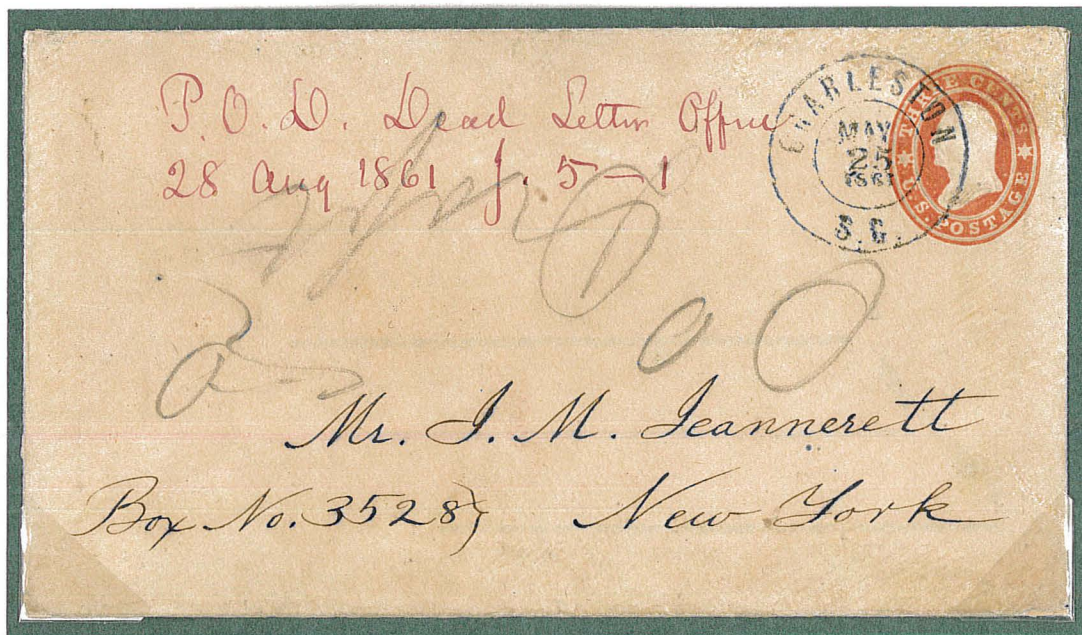 P. O. D. Dead Letter Office
28 Aug 1861 J. 5 — 1
CHARLESTON
MAY
25
1861
S.C.
THREE CENTS
U.S. POSTAGE
Mr. J. M. Jeannerett
Box No. 3528} New York